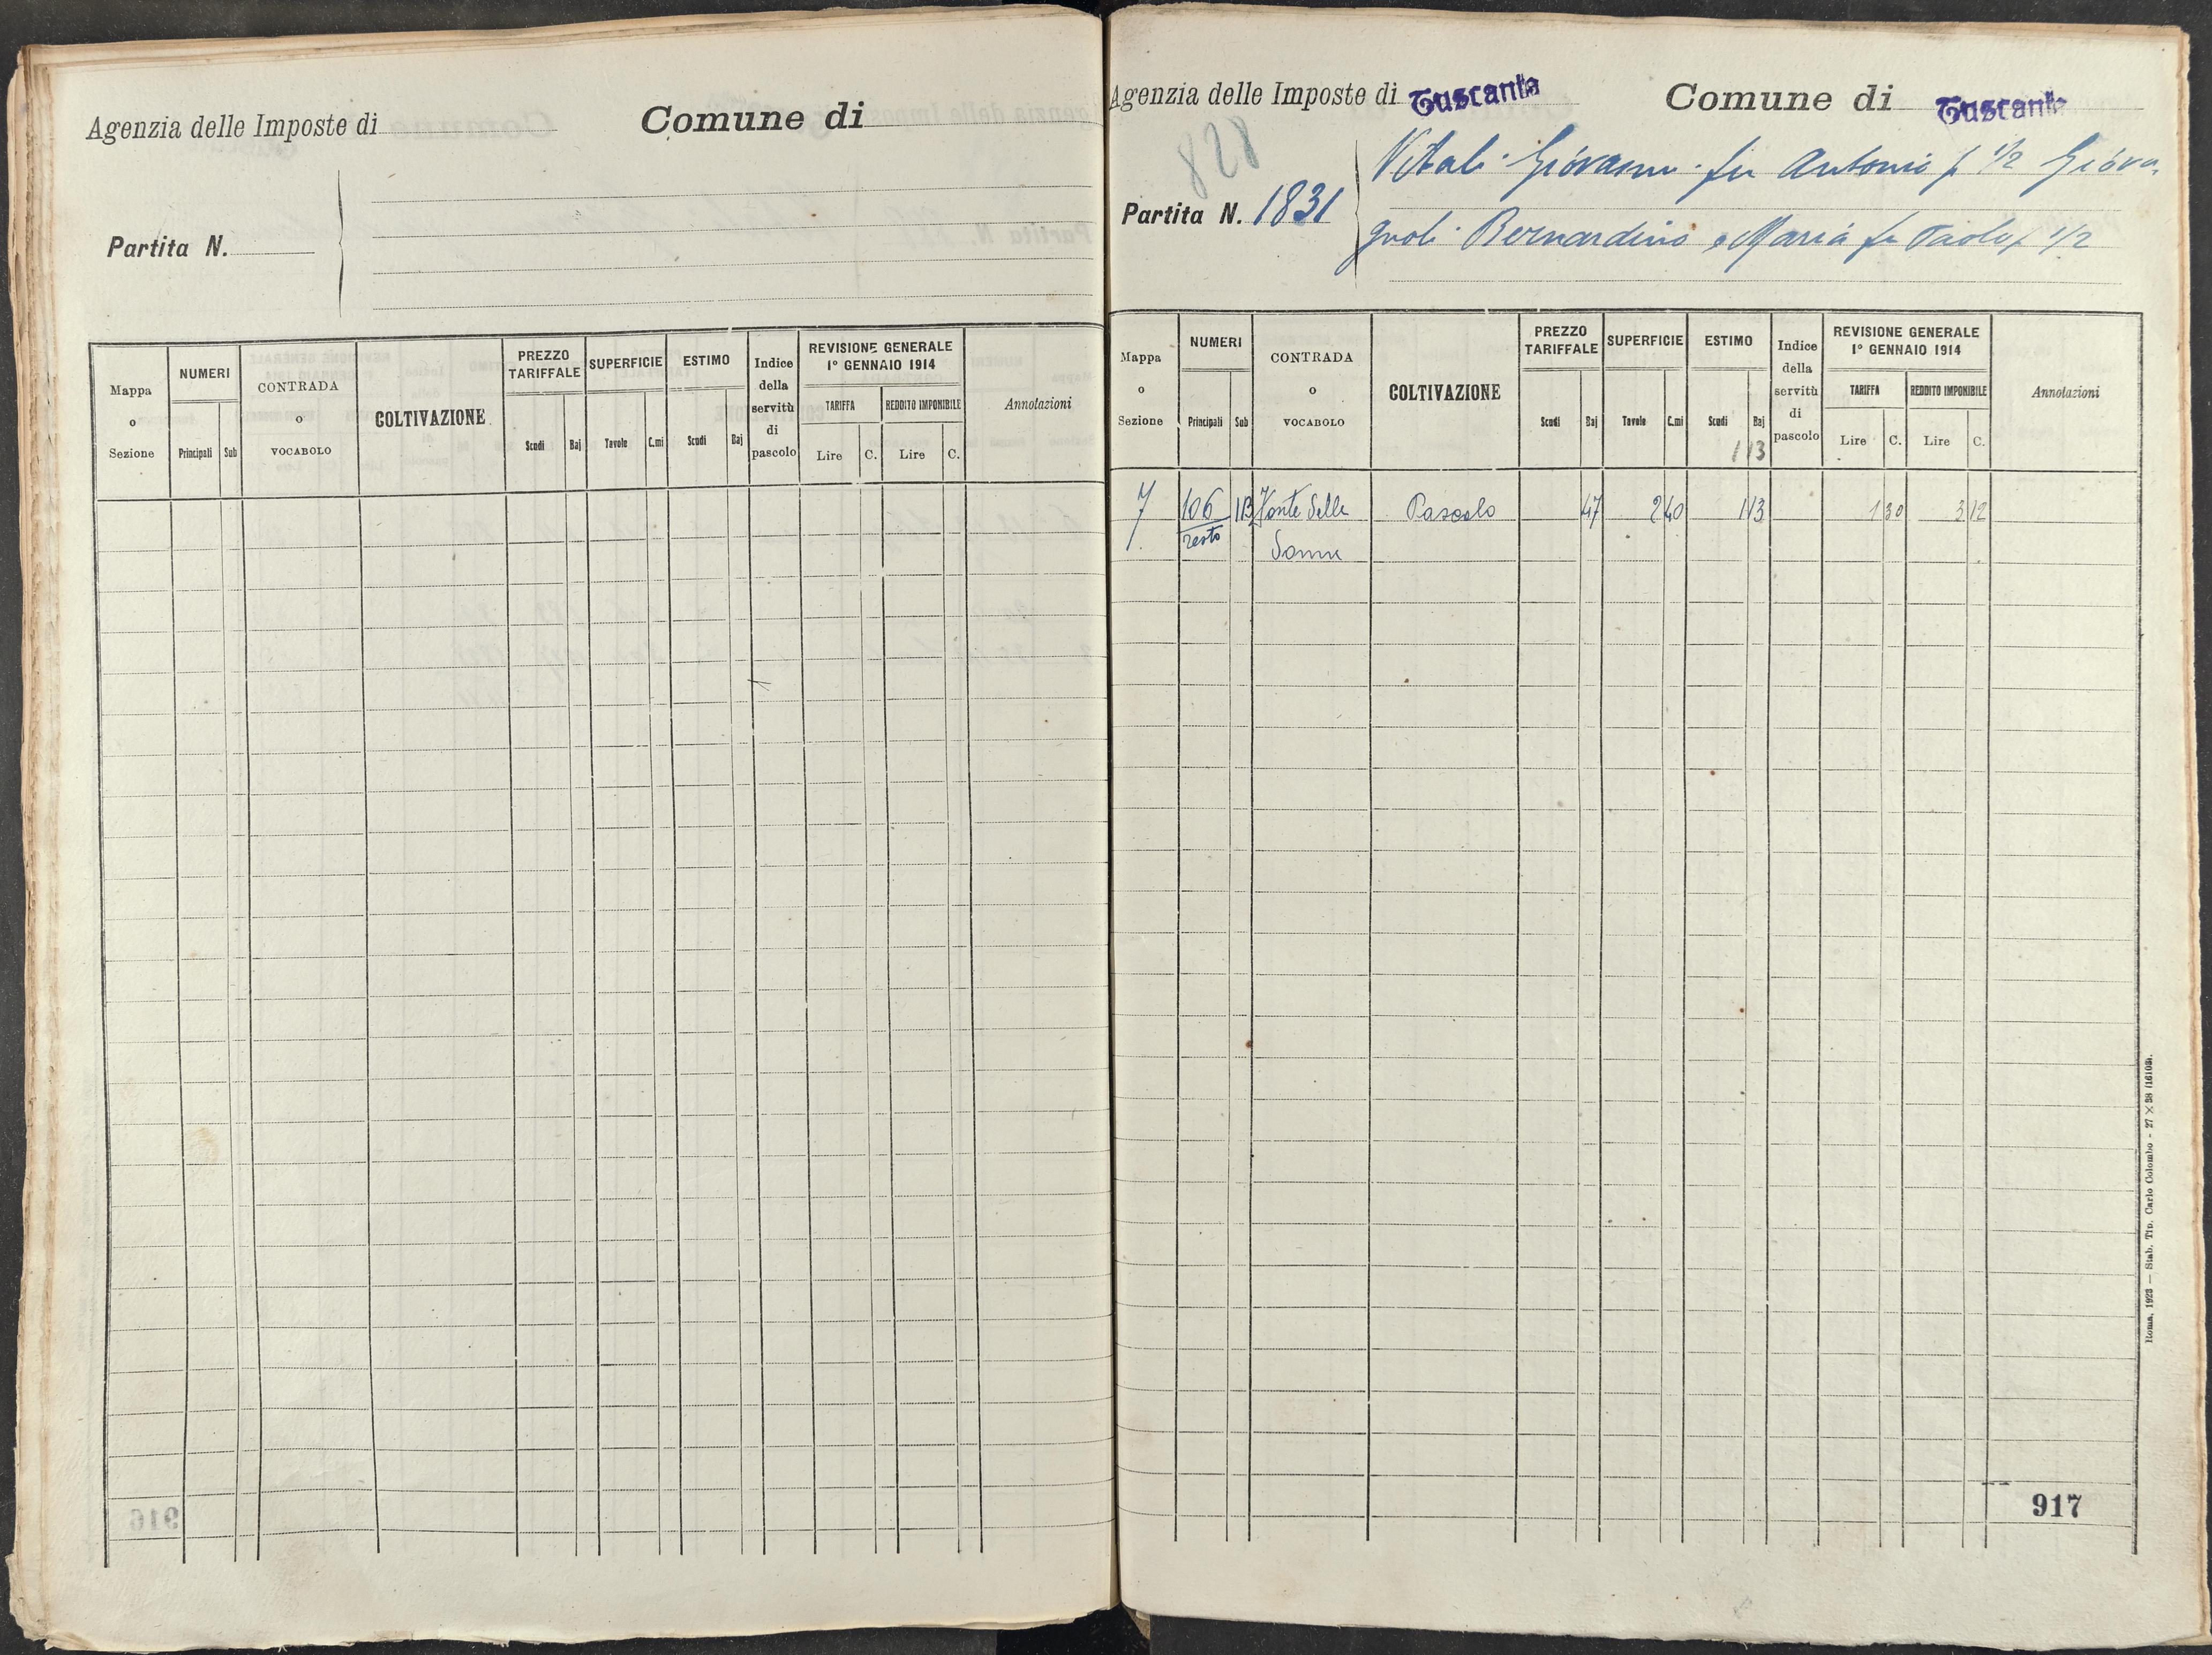 Agenzia delle Imposte di
Comune di
Partita N.
Mappa o Sezione
NUMERI
Principali
Sub
CONTRADA o VOCABOLO
COLTIVAZIONE
PREZZO TARIFFALE
Scudi
Baj
SUPERFICIE
Tavole
C.mi
ESTIMO
Scudi
Baj
Indice della servitù di pascolo
REVISIONE GENERALE
1° GENNAIO 1914
TARIFFA
REDDITO IMPONIBILE
Lire
C.
Lire
C.
Annotazioni
916
Agenzia delle Imposte di Tuscania
Comune di Tuscania
828
Partita N. 1831
Vitali Giovanni fu Antonio p 1/2 Giova
gnoli Bernardino e Maria fu Paolo p 1/2
Mappa o Sezione
NUMERI
Principali
Sub
CONTRADA o VOCABOLO
COLTIVAZIONE
PREZZO TARIFFALE
Scudi
Baj
SUPERFICIE
Tavole
C.mi
ESTIMO
Scudi
Baj
1 13
Indice della servitù di pascolo
REVISIONE GENERALE
1° GENNAIO 1914
TARIFFA
REDDITO IMPONIBILE
Lire
C.
Lire
C.
Annotazioni
7 106 delle Pascolo 47 2 40 1 13 1 30 3 12
resto
917
Roma, 1923 — Stab. Tip. Carlo Colombo - 27 × 38 (16103).